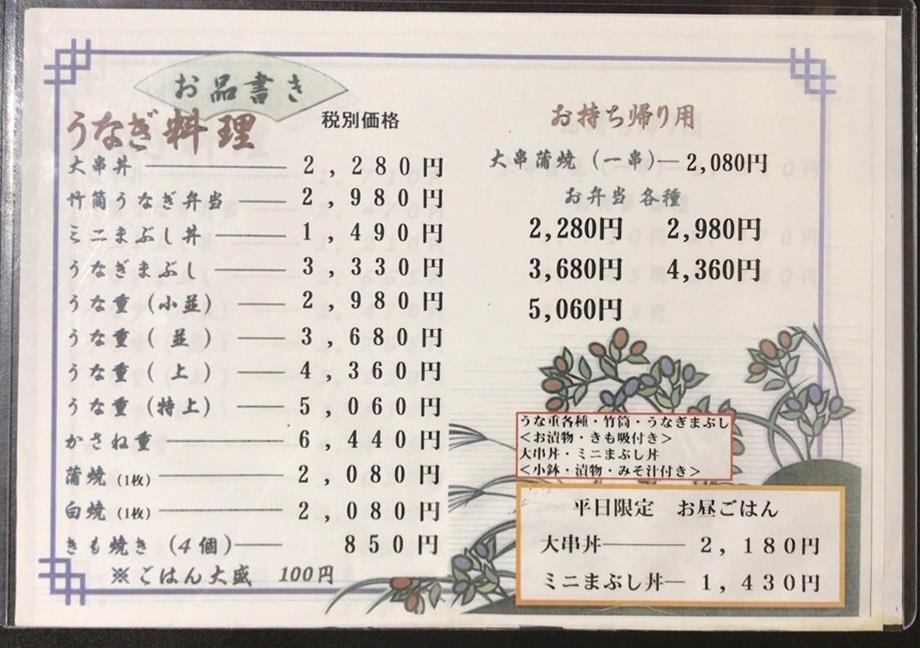 お品書き
うなぎ料理 税別価格
大串丼 2,280円
竹筒うなぎ弁当 2,980円
ミニまぶし丼 1,490円
うなぎまぶし 3,330円
うな重(小並) 2,980円
うな重(並) 3,680円
うな重(上) 4,360円
うな重(特上) 5,060円
かさね重 6,440円
蒲焼(1枚) 2,080円
白焼(1枚) 2,080円
きも焼き(4個) 850円
※ごはん大盛 100円
お持ち帰り用
大串蒲焼(一串) 2,080円
お弁当 各種
2,280円 2,980円
3,680円 4,360円
5,060円
うな重各種・竹筒・うなぎまぶし
<お漬物・きも吸付き>
大串丼・ミニまぶし丼
<小鉢・漬物・みそ汁付き>
平日限定 お昼ごはん
大串丼 2,180円
ミニまぶし丼 1,430円